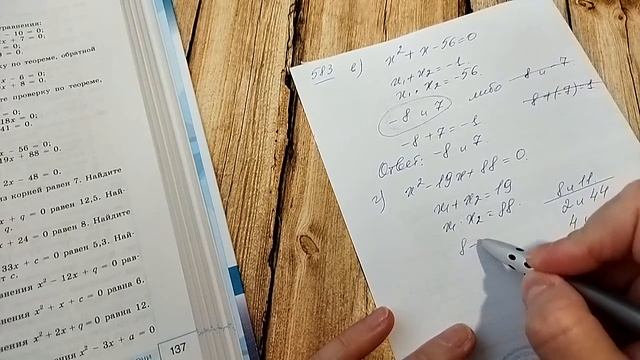 уравнения:
– 10 = 0;
+ 7 = 0;
= 0;
по теореме, обратной
x – 6 = 0;
x + 8 = 0.
те проверку по теореме,
= 0;
18x = 0;
41 = 0.
x – 56 = 0;
19x + 88 = 0.
2x – 48 = 0.
из корней равен 7. Найдите
x + q = 0 равен 12,5. Най-
q.
x + 24 = 0 равен 8. Найдите
33x + c = 0 равен 5,3. Най-
т c.
нения x² – 12x + q = 0 рав-
нения x² + x + c = 0 равна 6.
нения x² + 2x + q = 0 равна 12.
нения x² – 3x + a = 0
137
583 в) x² + x – 56 = 0
x₁ + x₂ = –1.
x₁ · x₂ = –56.
–8 и 7 либо 8 и –7
–8 + 7 = –1 8 + (–7) = 1
Ответ: –8 и 7
г) x² – 19x + 88 = 0.
x₁ + x₂ = 19 8 и 11
x₁ · x₂ = 88. 2 и 44
8 4